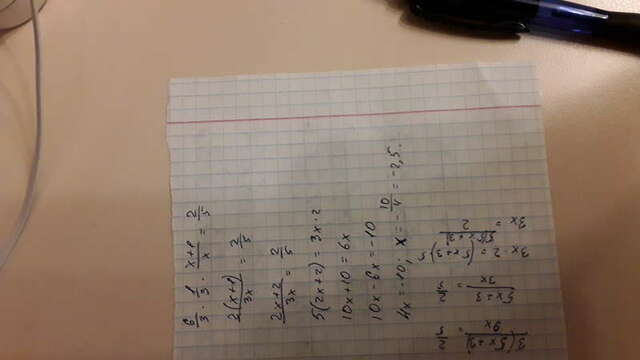 6/3 · 1/3 · x+1/x = 2/5
2(x+1)/3x = 2/5
2x+2/3x = 2/5
5(2x+2) = 3x·2
10x+10 = 6x
10x-6x = -10
4x = -10; x = -10/4 = -2,5.
3(5x+3)/9x = 2/5
5x+3/3x = 2/5
3x·2 = (5x+3)5
3x = 5(5x+3)/2